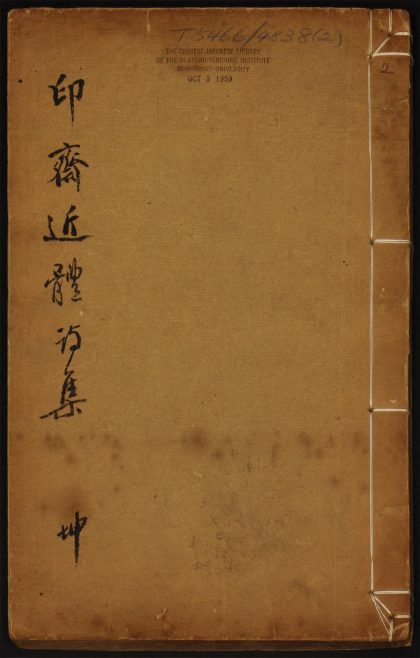 T5466/4838(2)
THE CHINESE-JAPANESE LIBRARY
OF THE HARVARD-YENCHING INSTITUTE
AT HARVARD UNIVERSITY
OCT 9 1959
2
印齋近體詩集 坤